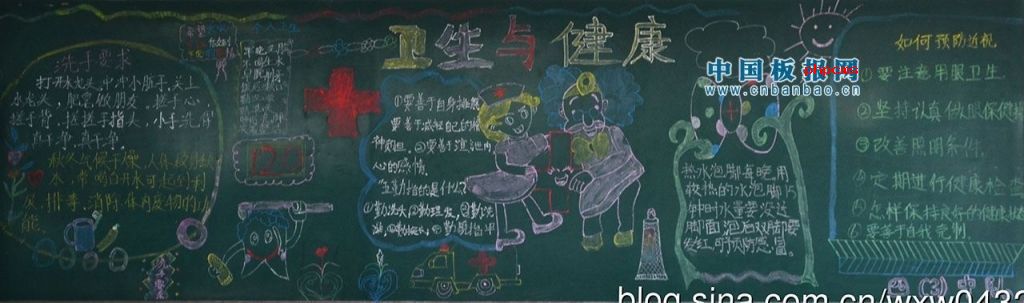 卫生与健康
洗手要求
打开水龙头,冲冲小脏手,关上
水龙头,肥皂做朋友。搓手心,
搓手背,搓搓手指头,小手洗得
真干净,真干净。
秋冬气候干燥,人体极易缺
水,常喝白开水可起到利
尿、排毒、消除体内废物的功
能。
120
①要善于自身排解
要善于减轻自己的精
神负担,②要善于渲泄内
心的感情。
五勤指的是什么?
热水泡脚每晚用
较热的水泡脚15
钟时水量要没过
脚面泡后双脚要
发红,可预防感冒。
如何预防近视
①要注意用眼卫生
②坚持认真做眼保健操
③改善照明条件。
④定期进行健康检查
⑤怎样保持良好的健康状
⑥要善于自我克制
(3)中队
中国板报网
www.cnbanbao.cn
blog.sina.com.cn/wxw0432